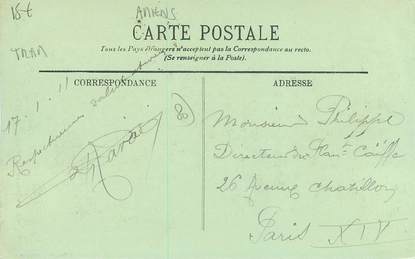 15€
AMIENS
TRAM
CARTE POSTALE
Tous les Pays étrangers n'acceptent pas la Correspondance au recto.
(Se renseigner à la Poste).
CORRESPONDANCE
ADRESSE
17.1.11
Respectueuses salutations
Monsieur Philippe
Directeur des Plan.ts Caïffa
26 Avenue Chatillon
Paris XIV